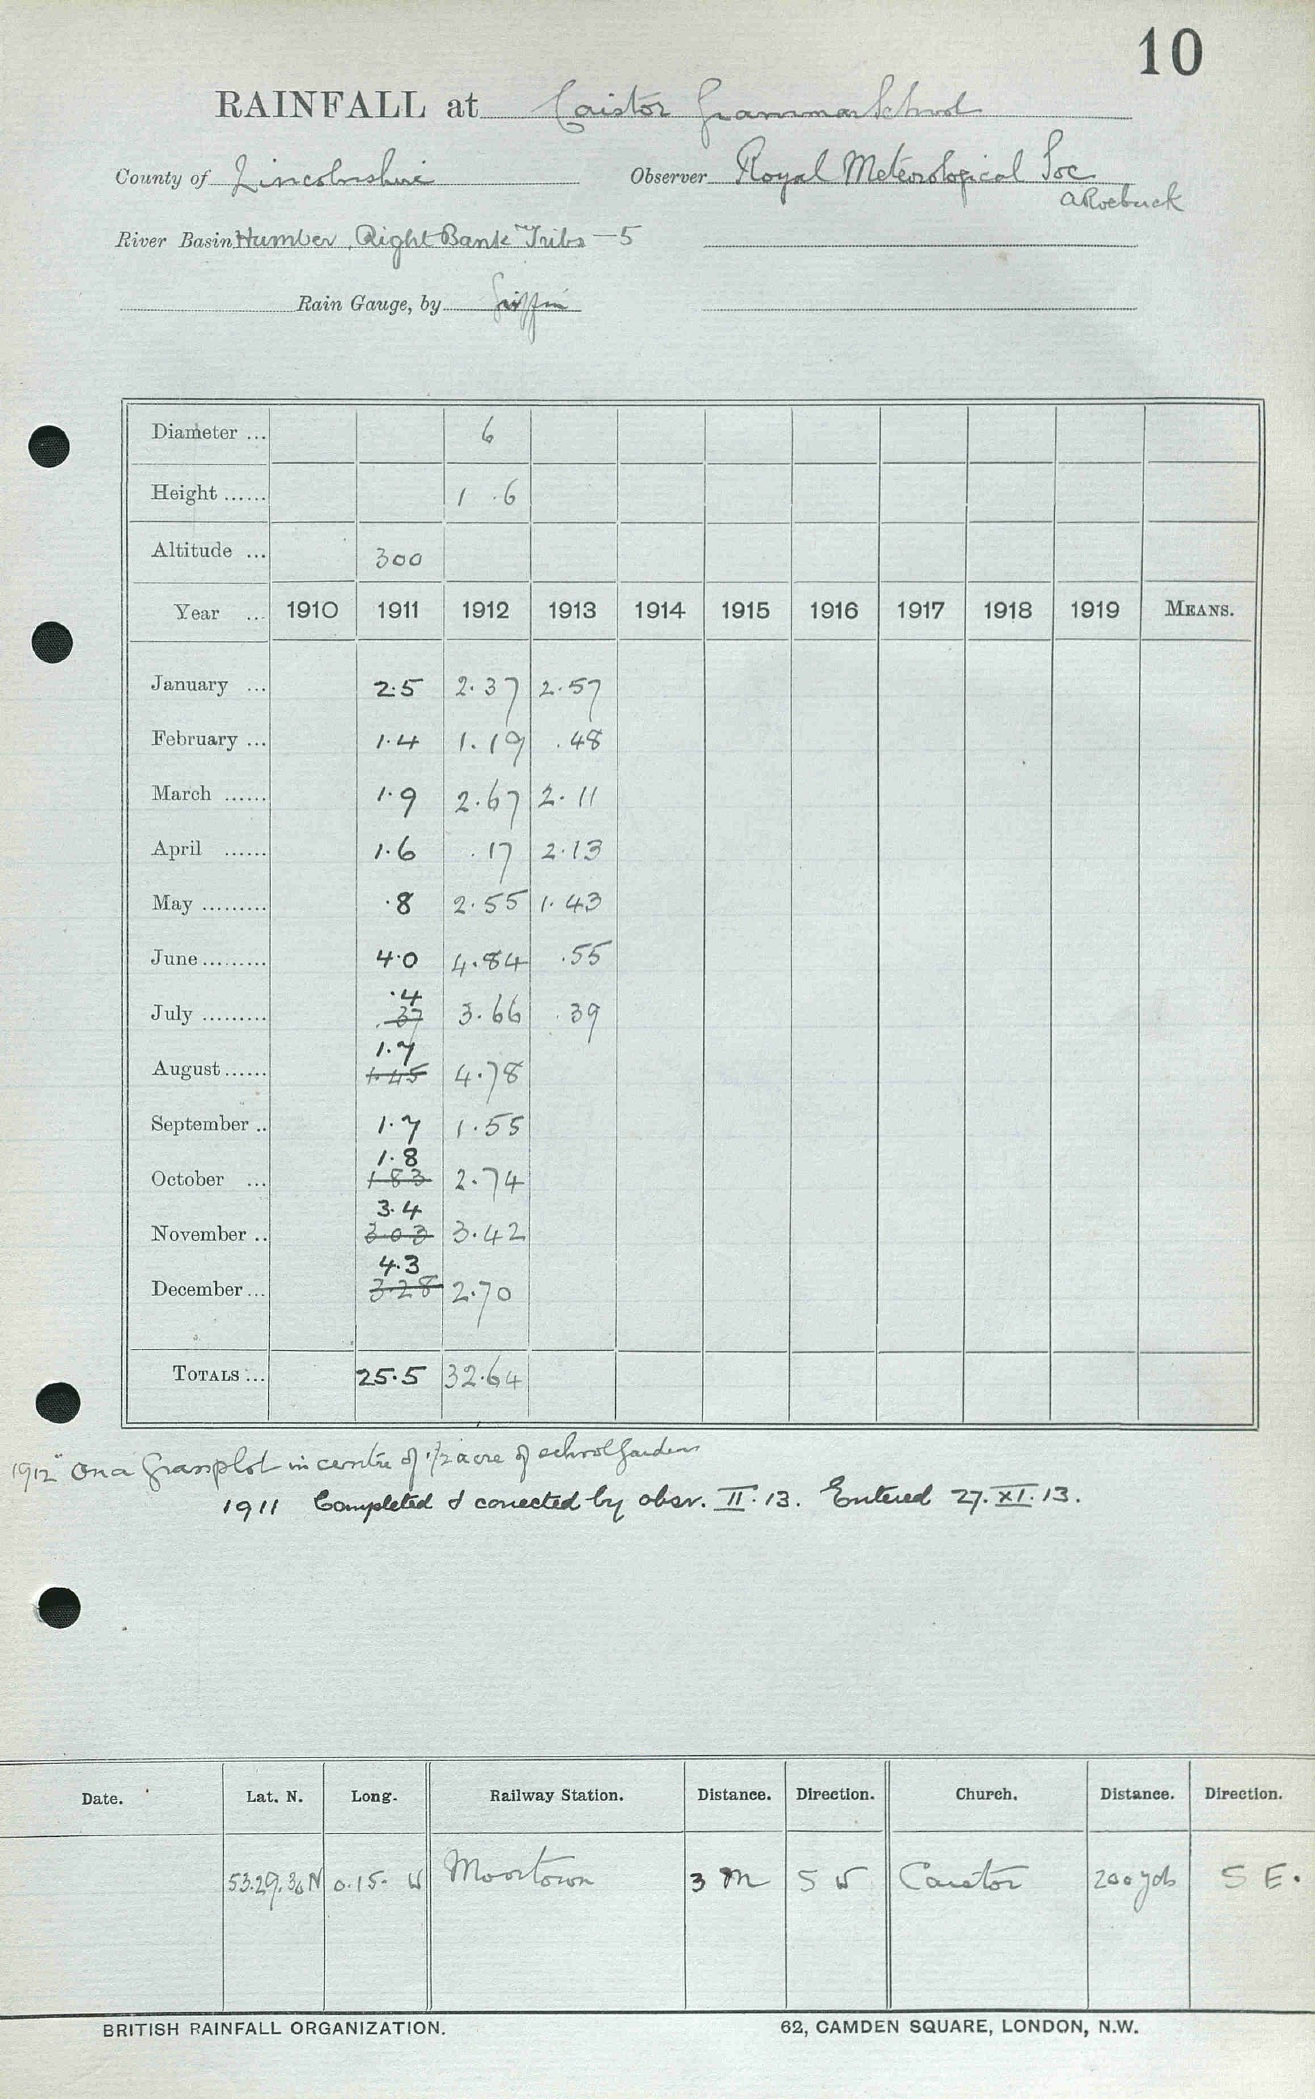 10
RAINFALL at Caistor Grammar School
County of Lincolnshire Observer Royal Meteorological Soc
A Roebuck
River Basin Humber Right Bank Tribs — 5
Rain Gauge, by Griffin
Diameter ... 6
Height ...... 1 .6
Altitude ... 300
Year ... 1910 1911 1912 1913 1914 1915 1916 1917 1918 1919 MEANS.
January ... 2.5 2.37 2.57
February ... 1.4 1.19 .48
March ...... 1.9 2.67 2.11
April ...... 1.6 .17 2.13
May ......... .8 2.55 1.43
June ......... 4.0 4.84 .55
.4
July ......... .37 3.66 .39
1.7
August ...... 1.45 4.78
September .. 1.7 1.55
1.8
October ... 1.83 2.74
3.4
November .. 3.03 3.42
4.3
December ... 3.28 2.70
TOTALS ... 25.5 32.64
1912 "On a Grassplot in centre of 1/2 acre of school Garden
1911 Completed & corrected by obsr. II.13. Entered 27.XI.13.
Date. Lat. N. Long. Railway Station. Distance. Direction. Church. Distance. Direction.
53.29.30 N 0.15. W Moortown 3 M S W Caistor 200 yds S E.
BRITISH RAINFALL ORGANIZATION. 62, CAMDEN SQUARE, LONDON, N.W.